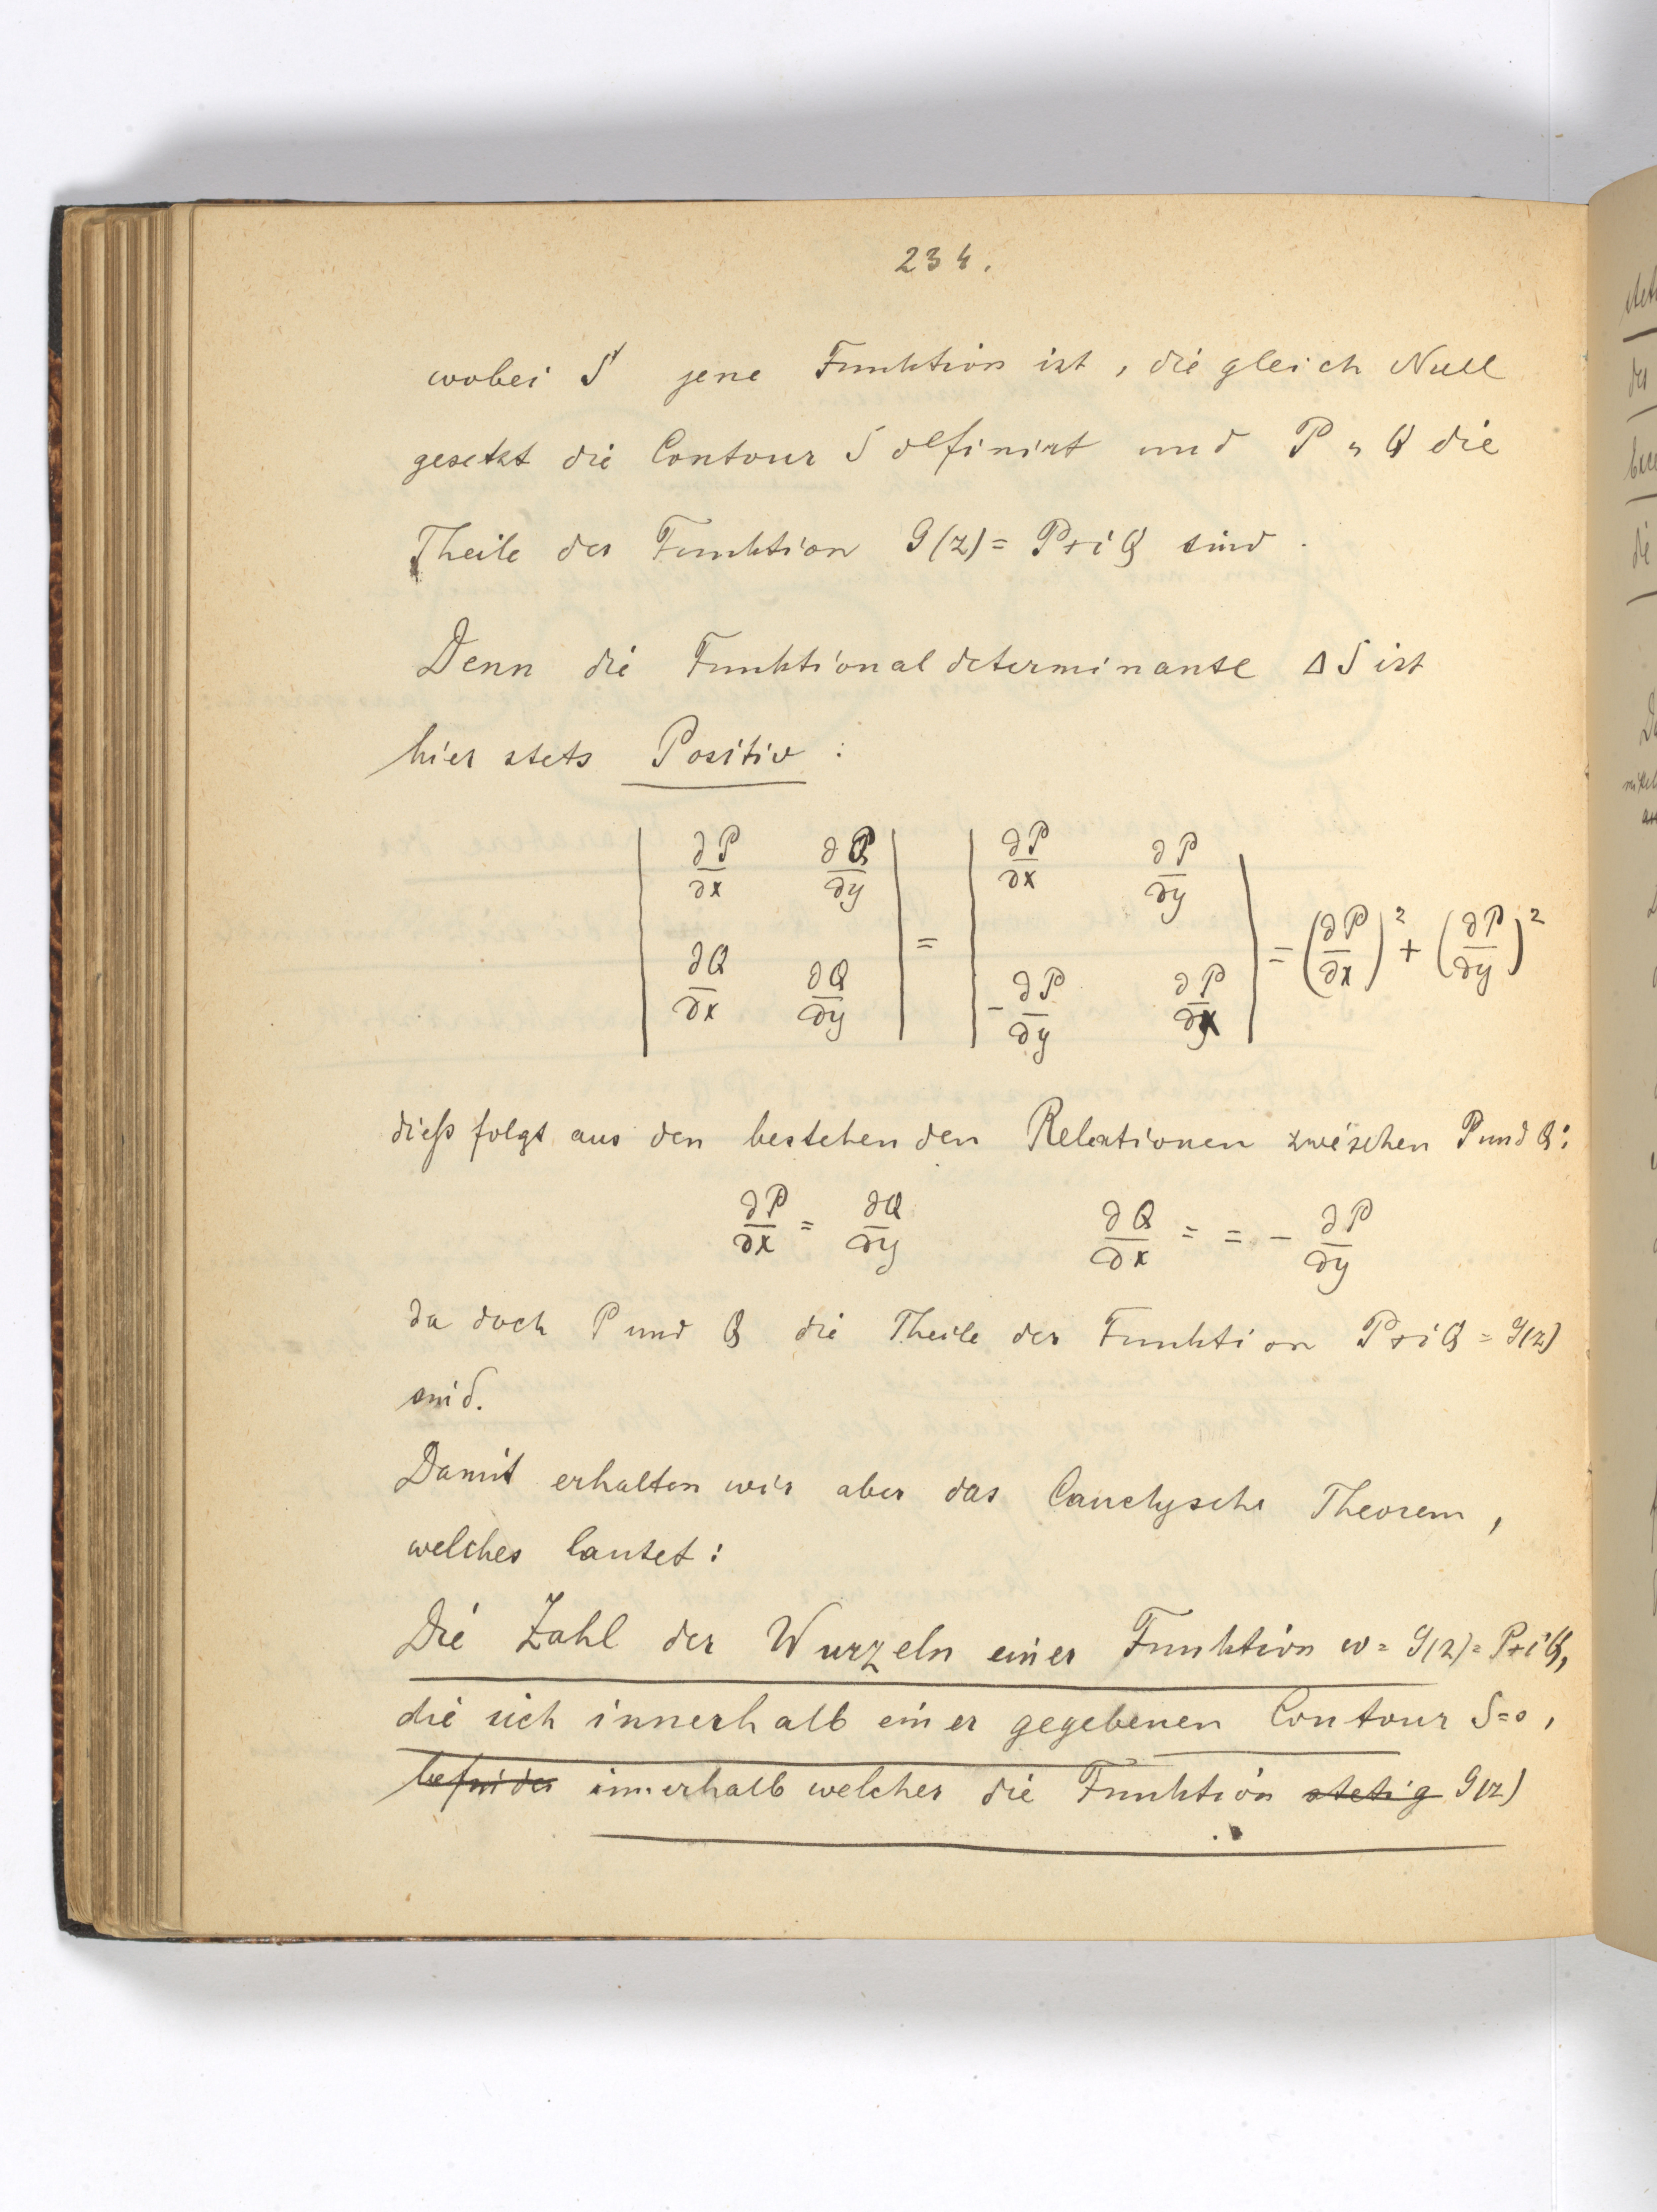 234.
wobei S jene Funktion ist, die gleich Null
gesetzt die Contour S definirt und P, Q die
Theile der Funktion G(z) = P+iQ sind.
Denn die Funktionaldeterminante ΔS ist
hier stets Positiv:
| ∂P/∂x ∂P/∂y ; ∂Q/∂x ∂Q/∂y | = | ∂P/∂x ∂P/∂y ; -∂P/∂y ∂P/∂x | = (∂P/∂x)² + (∂P/∂y)²
dieß folgt aus den bestehenden Relationen zwischen P und Q:
∂P/∂x = ∂Q/∂y ∂Q/∂x = = - ∂P/∂y
da doch P und Q die Theile der Funktion P+iQ = G(z)
sind.
Damit erhalten wir aber das Cauchysche Theorem,
welches lautet:
Die Zahl der Wurzeln einer Funktion w = G(z) = P+iQ,
die sich innerhalb einer gegebenen Contour S=0,
befindet innerhalb welcher die Funktion stetig G(z)